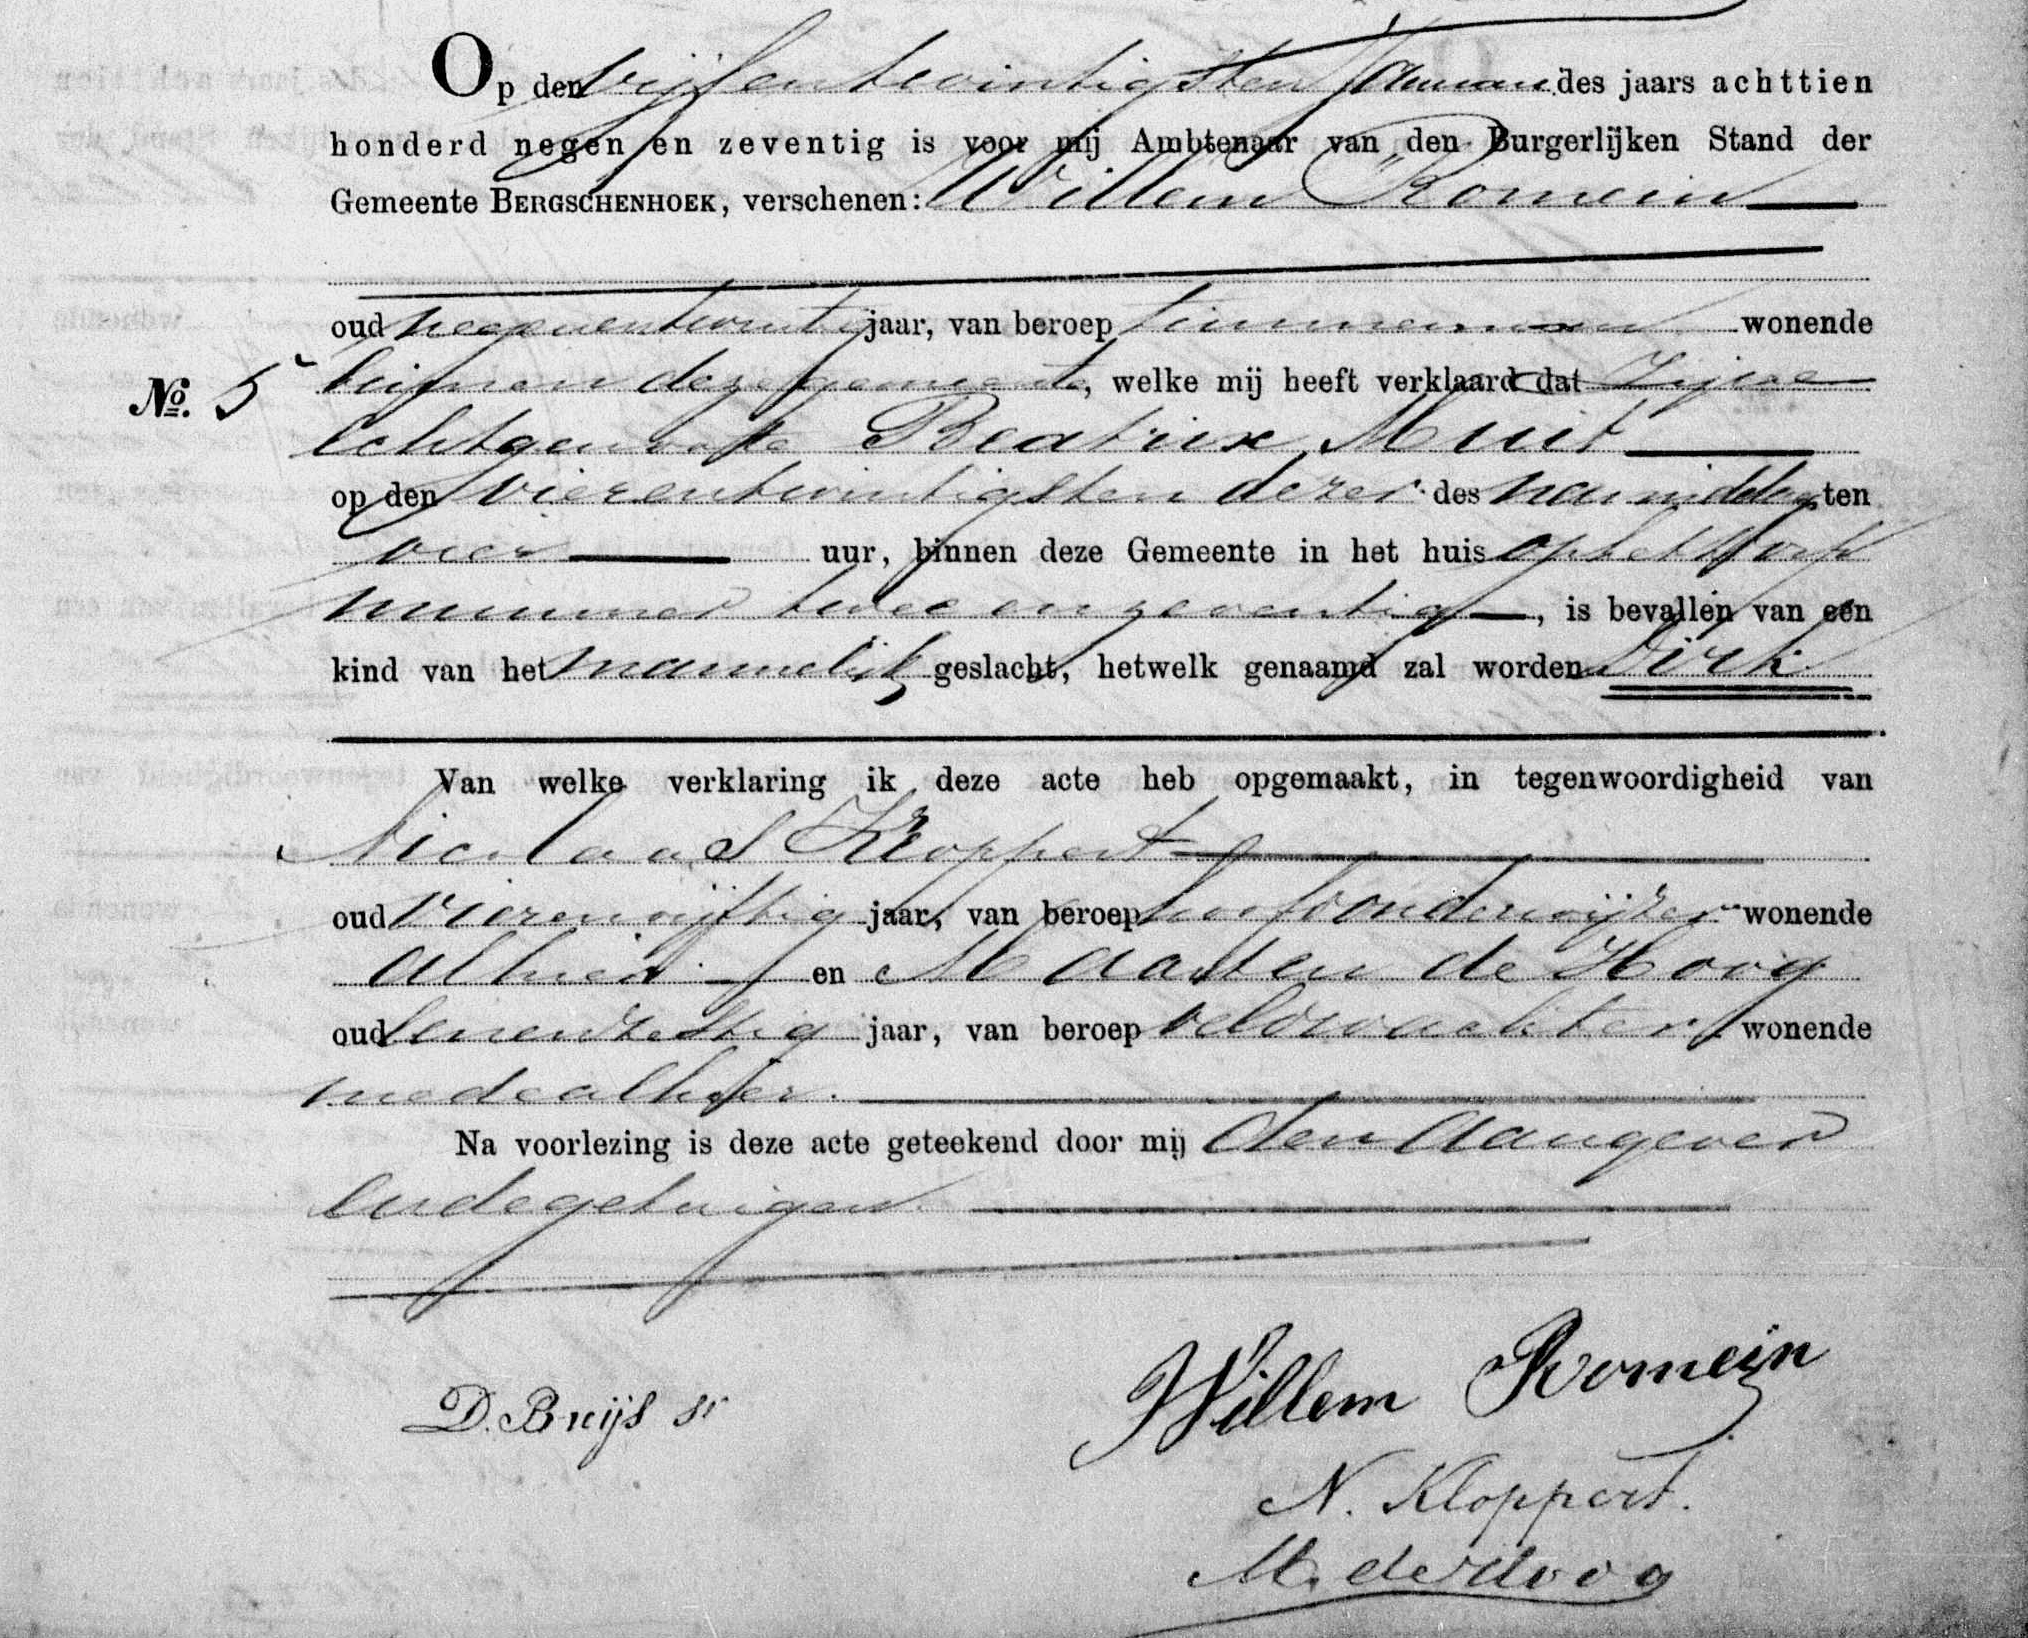 Op den vijfentwintigsten Januari des jaars achttien
honderd negen en zeventig is voor mij Ambtenaar van den Burgerlijken Stand der
Gemeente BERGSCHENHOEK, verschenen: Willem Romein
oud negenentwintig jaar, van beroep timmerman wonende
No. 5 binnen deze gemeente, welke mij heeft verklaard dat zijne
echtgenoote Beatrix Muit
op den vierentwintigsten dezer des namiddags ten
vier uur, binnen deze Gemeente in het huis op het dorp
nummer twee en zeventig, is bevallen van een
kind van het mannelijk geslacht, hetwelk genaamd zal worden Dirk
Van welke verklaring ik deze acte heb opgemaakt, in tegenwoordigheid van
Nicolaas Kloppert
oud vierenvijftig jaar, van beroep hoofdonderwijzer wonende
alhier en Maarten de Hoog
oud eenenzestig jaar, van beroep veldwachter wonende
medealhier.
Na voorlezing is deze acte geteekend door mij den aangever
en de getuigen.
D. Buijs sr
Willem Romein
N. Kloppert.
M. de Hoog